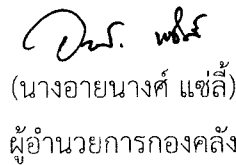 (นางอายนางศ์ แซ่ลี้)
ผู้อำนวยการกองคลัง